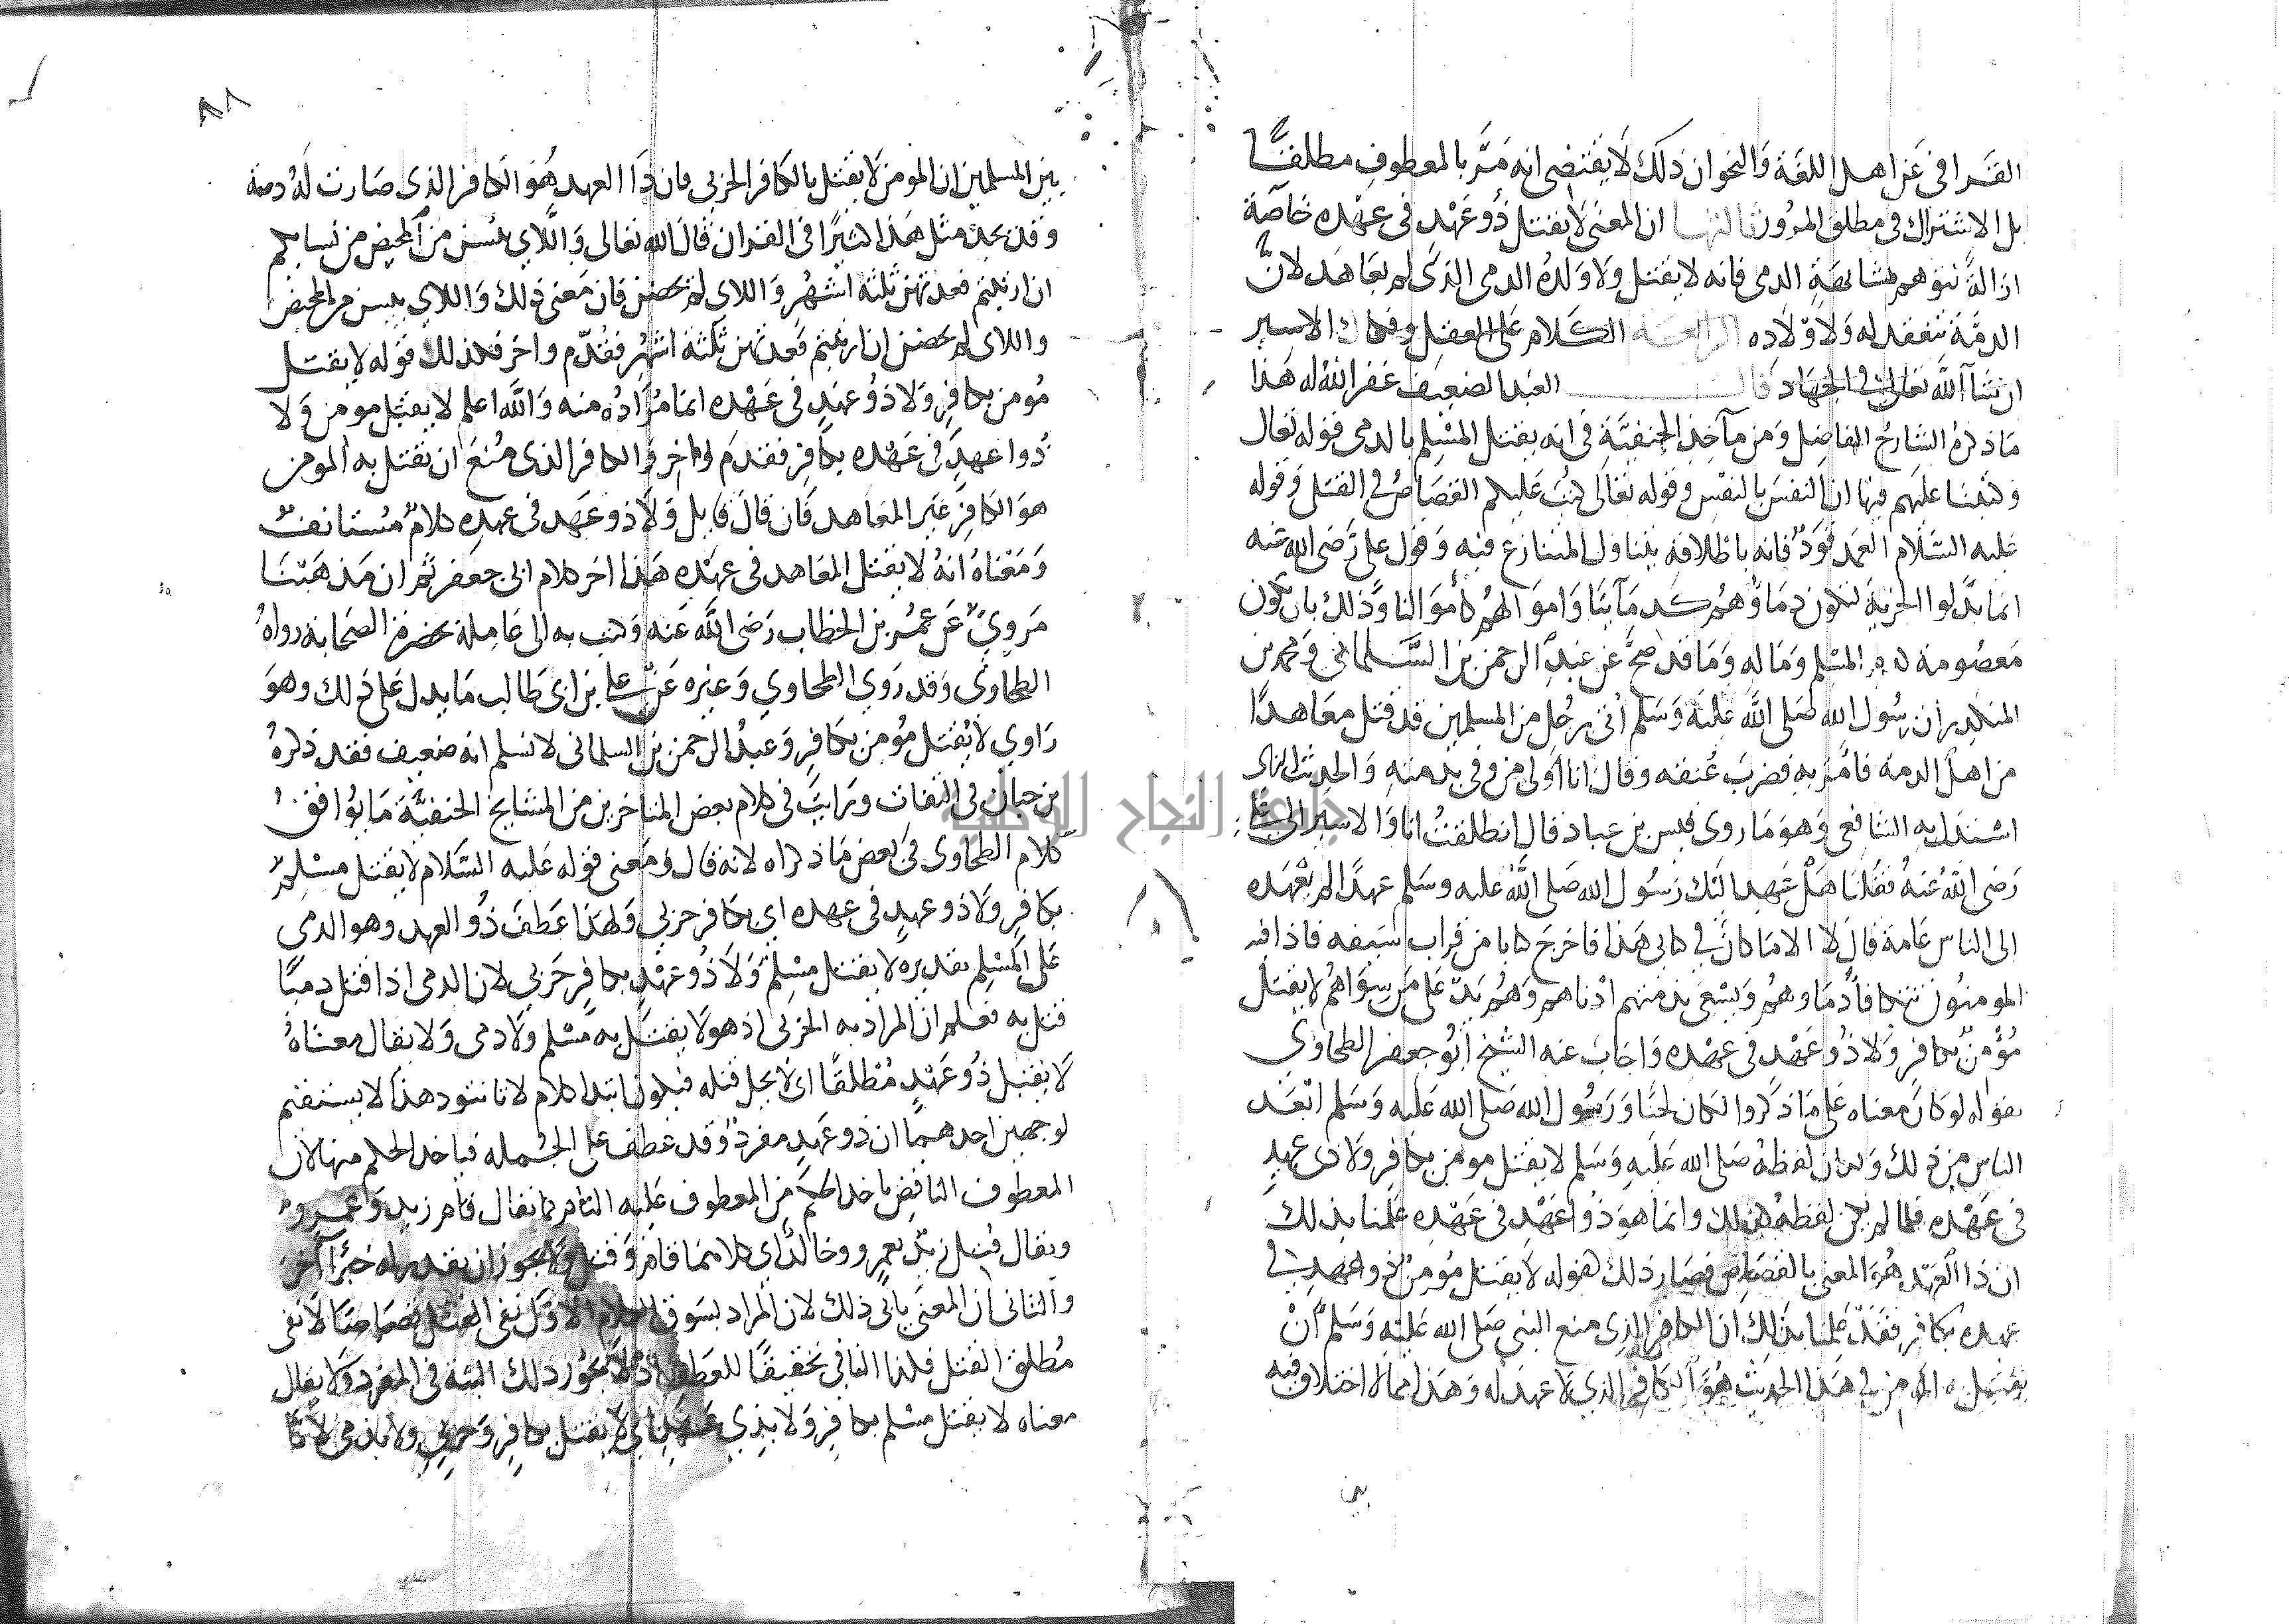 القرافي عن اهل اللغة والنحو ان ذلك لا يقتضي انه مر بالمعطوف مطلقا
بل الاشتراك في مطلق المرور ثالثها ان المعنى لا يقتل ذو عهد في عهده خاصة
ازالة لتوهم مشابهة الذمي فانه لا يقتل ولا ولده الذمي الذي لم يعاهد لان
الذمة تنعقد له ولاولاده الرابعة الكلام على العقل وفكاك الاسير
ان شاء الله تعالى في الجهاد قال العبد الضعيف غفر الله له هذا
ما ذكره الشارح الفاضل ومن مآخذ الحنفية في انه يقتل المسلم بالذمي قوله تعالى
وكتبنا عليهم فيها ان النفس بالنفس وقوله تعالى كتب عليكم القصاص في القتلى وقوله
عليه السلام العمد قود فانه باطلاقه يتناول المتنازع فيه وقول علي رضي الله عنه
انما بذلوا الجزية لتكون دماؤهم كدمآئنا واموالهم كأموالنا وذلك بان تكون
معصومة كدم المسلم وماله وما قد صح عن عبد الرحمن بن السلماني ومحمد بن
المنكدر أن رسول الله صلى الله عليه وسلم أتي برجل من المسلمين قد قتل معاهدا
من اهل الذمة فأمر به فضرب عنقه وقال انا اولى من وفى بذمته والحديث الذي
استدل به الشافعي وهو ما روى قيس بن عباد قال انطلقت انا والاسير الى علي
رضي الله عنه فقلنا هل عهد اليك رسول الله صلى الله عليه وسلم عهدا لم يعهده
الى الناس عامة قال لا الا ما كان في كتابي هذا فاخرج كتابا من قراب سيفه فاذا فيه
المومنون تتكافأ دماوهم ويسعى بذمتهم ادناهم وهم يد على من سواهم لا يقتل
مؤمن بكافر ولا ذو عهد في عهده واجاب عنه الشيخ أبو جعفر الطحاوي
بقوله لو كان معناه على ما ذكروا لكان لحنا ورسول الله صلى الله عليه وسلم ابعد
الناس من ذلك ولكان لفظه صلى الله عليه وسلم لا يقتل مومن بكافر ولا ذي عهد
في عهده فلما لم يكن لفظه كذلك وانما هو ذوا عهد في عهده علمنا بذلك
ان ذا العهد هو المعني بالقصاص فصار ذلك كقوله لا يقتل مؤمن ولا ذو عهد في
عهده بكافر فقد علمنا بذلك ان الكافر الذي منع النبي صلى الله عليه وسلم أن
يقتل به المومن في هذا الحديث هو الكافر الذي لا عهد له وهذا مما لا اختلاف فيه
بين
٨٨
بين المسلمين ان المومن لا يقتل بالكافر الحربي فان ذا العهد هو الكافر الذي صارت له ذمة
وقد يجئ مثل هذا كثيرا في القران قال الله تعالى واللاي يئسن من المحيض من نسايكم
ان ارتبتم فعدتهن ثلثة اشهر واللاي لم يحضن فان معنى ذلك واللاي يئسن من المحيض
واللاي لم يحضن إن ارتبتم فعدتهن ثلثة اشهر فقدم واخر فكذلك قوله لا يقتل
مومن بكافر ولا ذو عهد في عهده انما مراده منه والله اعلم لا يقتل مومن ولا
ذوا عهد في عهده بكافر فقدم واخر والكافر الذي منع ان يقتل به المومن
هو الكافر غير المعاهد فان قال قايل ولا ذو عهد في عهده كلام مستانف
ومعناه انه لا يقتل المعاهد في عهده هذا اخر كلام ابي جعفر ثم ان مذهبنا
مروي عن عمر بن الخطاب رضي الله عنه وكتب به الى عامله بمحضر من الصحابة رواه
الطحاوي وقد روى الطحاوي وغيره عن علي بن ابي طالب ما يدل على ذلك وهو
راوي لا يقتل مؤمن بكافر وعبد الرحمن بن السلماني لا نسلم انه ضعيف فقد ذكره
بن حبان في الثقات ورايت في كلام بعض المتاخرين من المشايخ الحنفية ما يوافق
كلام الطحاوي في بعض ما ذكراه لانه قال ومعنى قوله عليه السلام لا يقتل مسلم
بكافر ولا ذو عهد في عهده اي بكافر حربي ولهذا عطف ذو العهد وهو الذمي
على المسلم تقديره لا يقتل مسلم ولا ذو عهد بكافر حربي لان الذمي اذا قتل دميا
قتل به فعلم ان المراد به الحربي اذ هو لا يقتل به مسلم ولا دمي ولا يقال معناه
لا يقتل ذو عهد مطلقا اي لا يحل قتله فيكون ابتدا كلام لانا نقول هذا لا يستقيم
لوجهين احدهما ان ذو عهد مفرد وقد عطف على الجمله فياخذ الحكم منها لان
المعطوف الناقص ياخذ الحكم من المعطوف عليه التام كما يقال قام زيد وعمرو
ويقال قتل زيد بعمرو وخالد اي كلاهما قام وقتل ولا يجوز ان يقدر له خبرا آخر
والثاني ان المعنى يابى ذلك لان المراد بسوق الكلام الاول نفي القتل قصاصا لا نفي
مطلق القتل فكذا الثاني تحقيقا للعطف اذ لا يجوز ذلك البتة في المفرد ولا يقال
معناه لا يقتل مسلم بكافر ولا بذي عهد اي لا يقتل بكافر وحربي ولا بذمي لانا
جامعة النجاح الوطنية